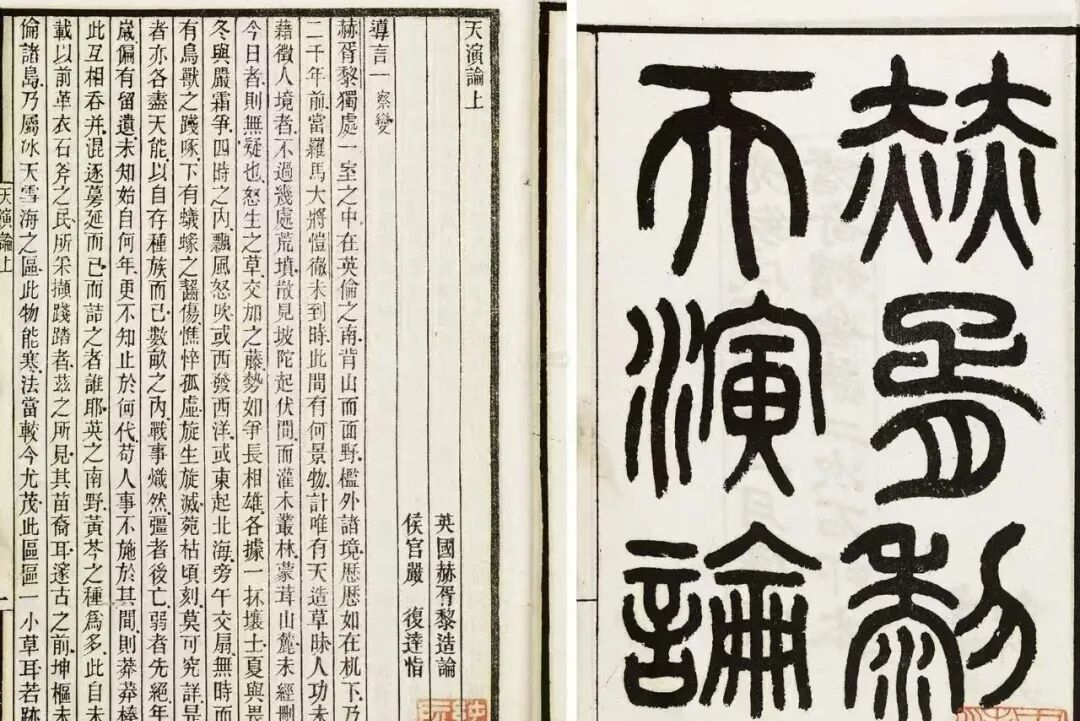 赫胥黎
天演論
天演論上
英國赫胥黎造論
侯官嚴 復達恉
導言一 察變
赫胥黎獨處一室之中在英倫之南背山而面野檻外諸境歴歴如在机下乃
二千年前當羅馬大將愷徹未到時此間有何景物計唯有天造草昧人功未
藉徵人境者不過幾處荒墳散見坡陀起伏間而灌木叢林蒙茸山麓未經刪
今日者則無疑也怒生之草交加之藤勢如爭長相雄各據一抔壤土夏與畏
冬與嚴霜爭四時之內飄風怒吹或西發西洋或東起北海旁午交扇無時而
有鳥獸之踐啄下有蟻蝝之齧傷憔悴孤虛旋生旋滅菀枯頃刻莫可究詳是
者亦各盡天能以自存種族而已數畝之內戰事熾然彊者後亡弱者先絕年
嵗偏有留遺未知始自何年更不知止於何代苟人事不施於其間則莽莽榛
此互相吞并混逐蔓延而已而詰之者誰耶英之南野黃芩之種爲多此自未
載以前革衣石斧之民所采擷踐踏者茲之所見其苗裔耳邃古之前坤樞未
倫諸島乃屬冰天雪海之區此物能寒法當較今尤茂此區區一小草耳若跡
天演論上